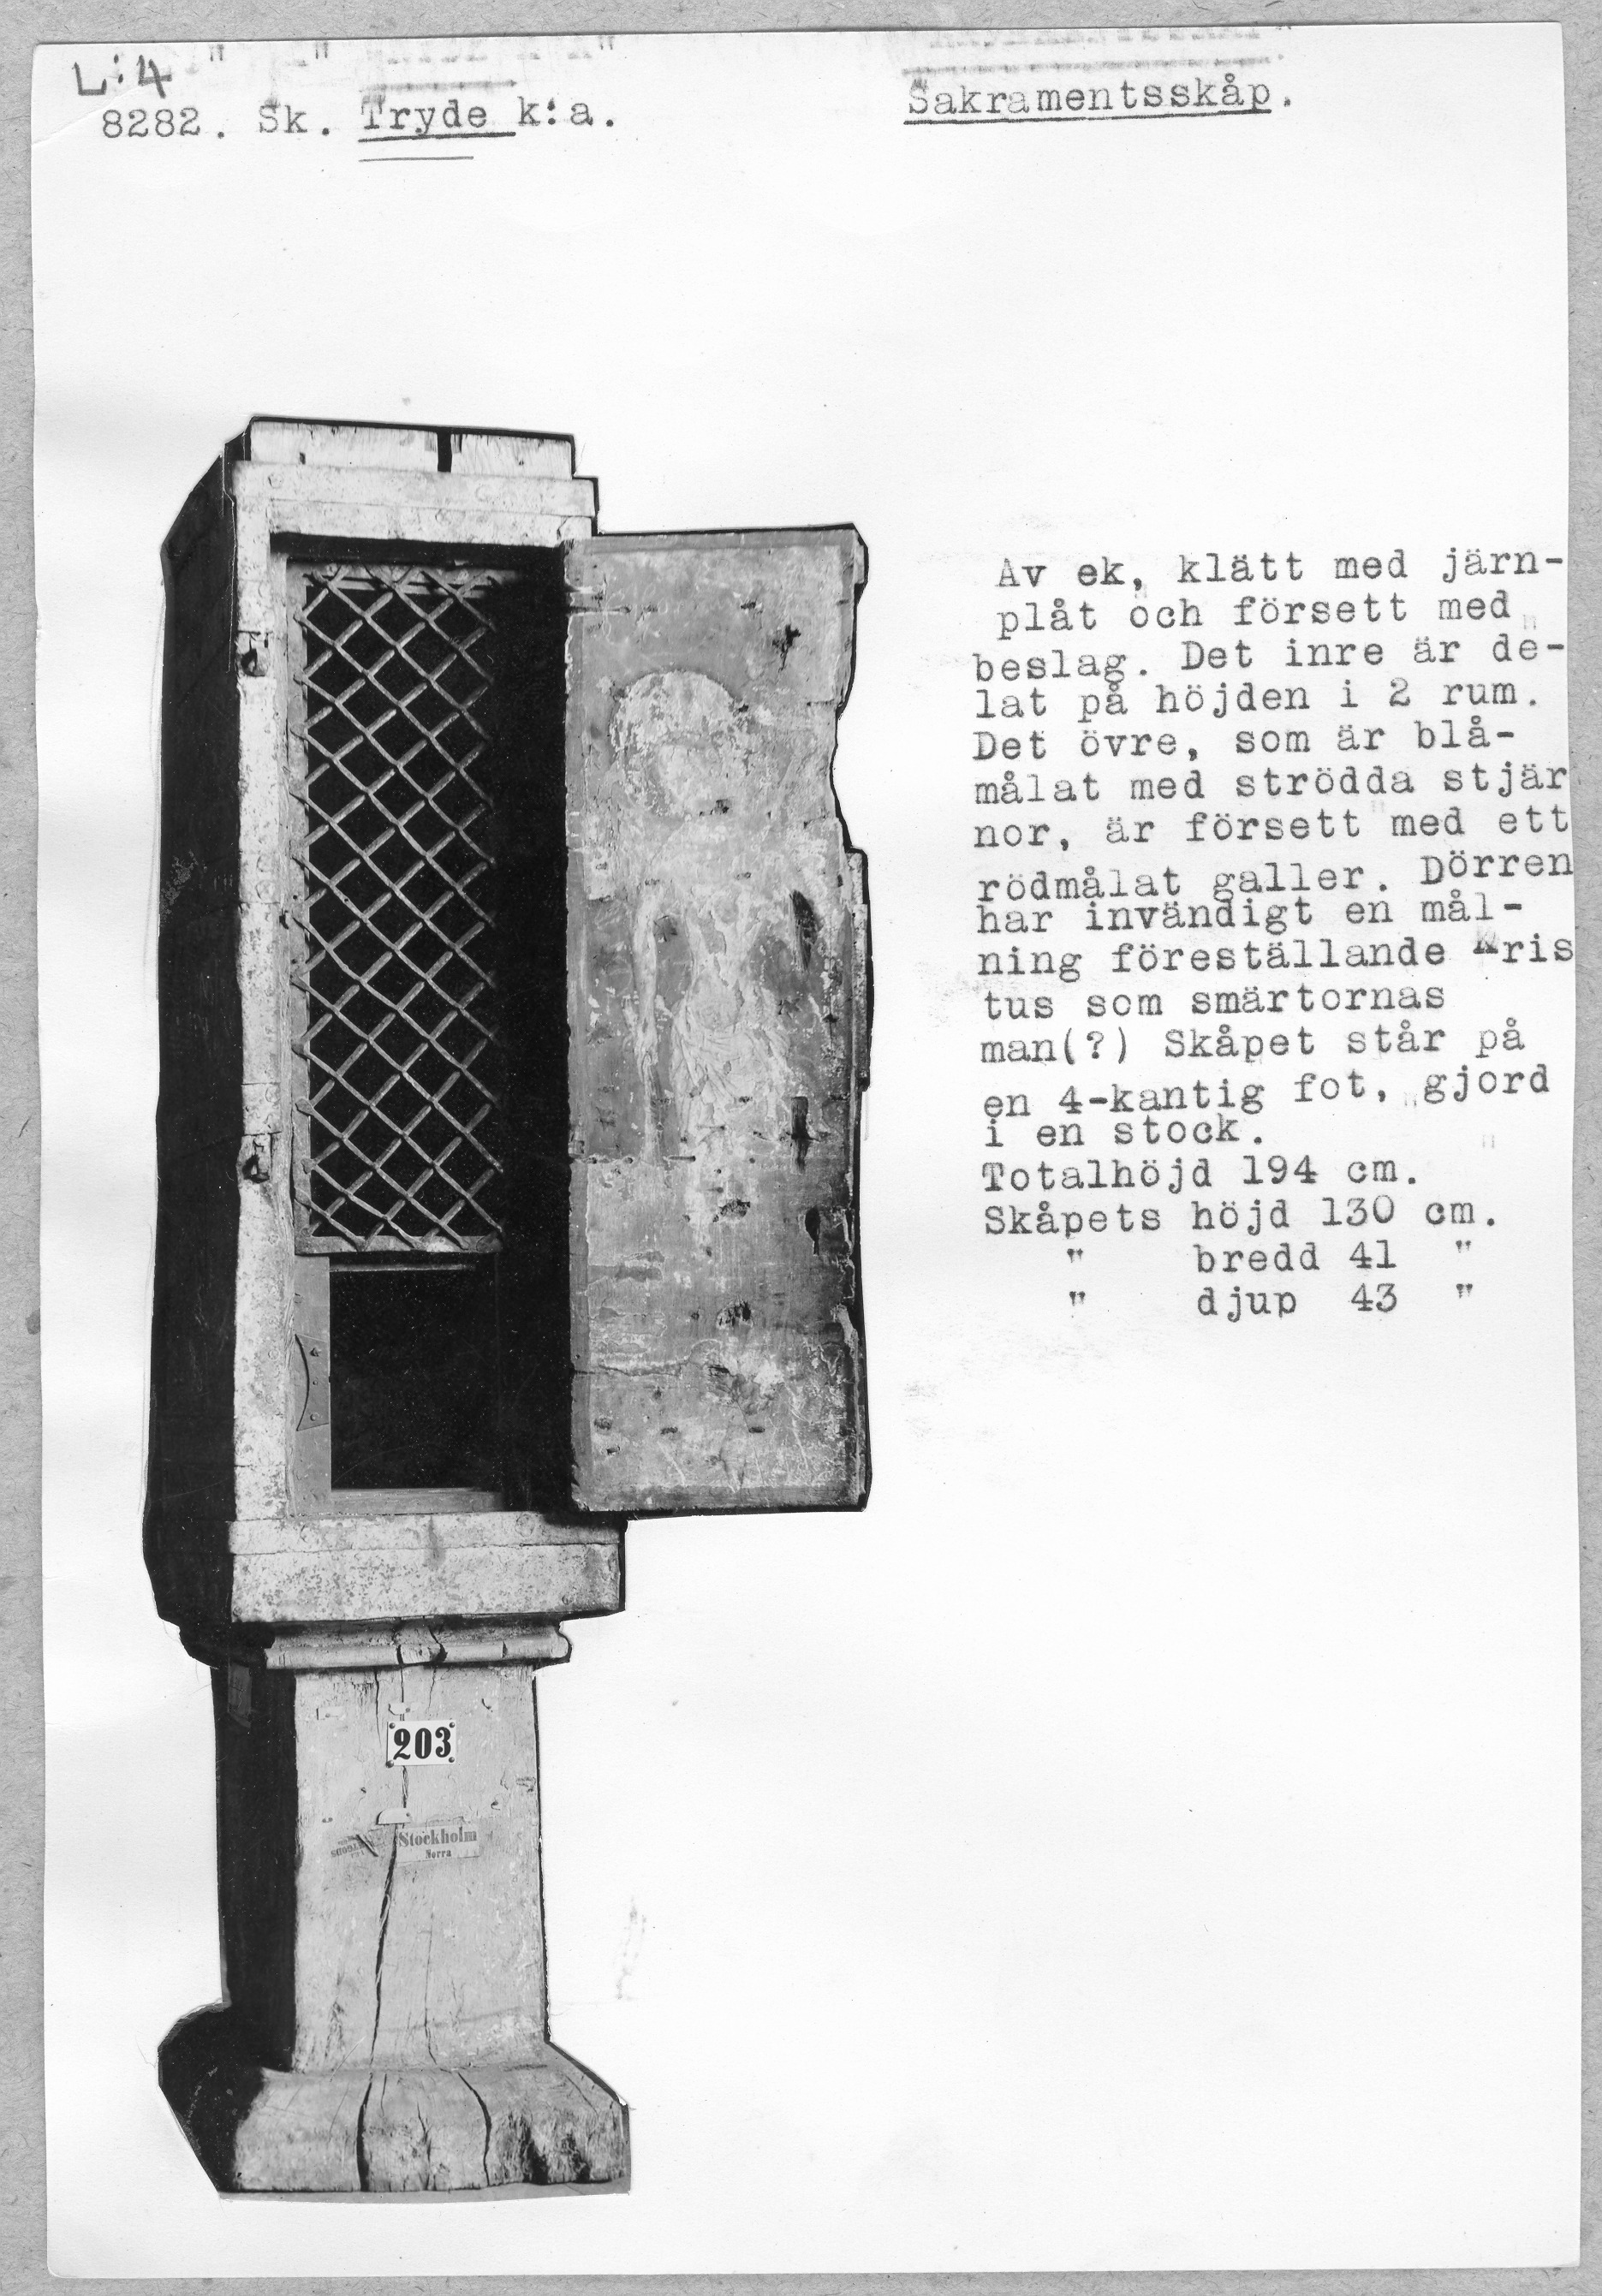 L:4
8282. Sk. Tryde k:a.
Sakramentsskåp.
Av ek, klätt med järn-
plåt och försett med
beslag. Det inre är de-
lat på höjden i 2 rum.
Det övre, som är blå-
målat med strödda stjär
nor, är försett med ett
rödmålat galler. Dörren
har invändigt en mål-
ning föreställande Kris
tus som smärtornas
man(?) Skåpet står på
en 4-kantig fot, gjord
i en stock.
Totalhöjd 194 cm.
Skåpets höjd 130 cm.
" bredd 41 "
" djup 43 "
203
Stockholm
Norra